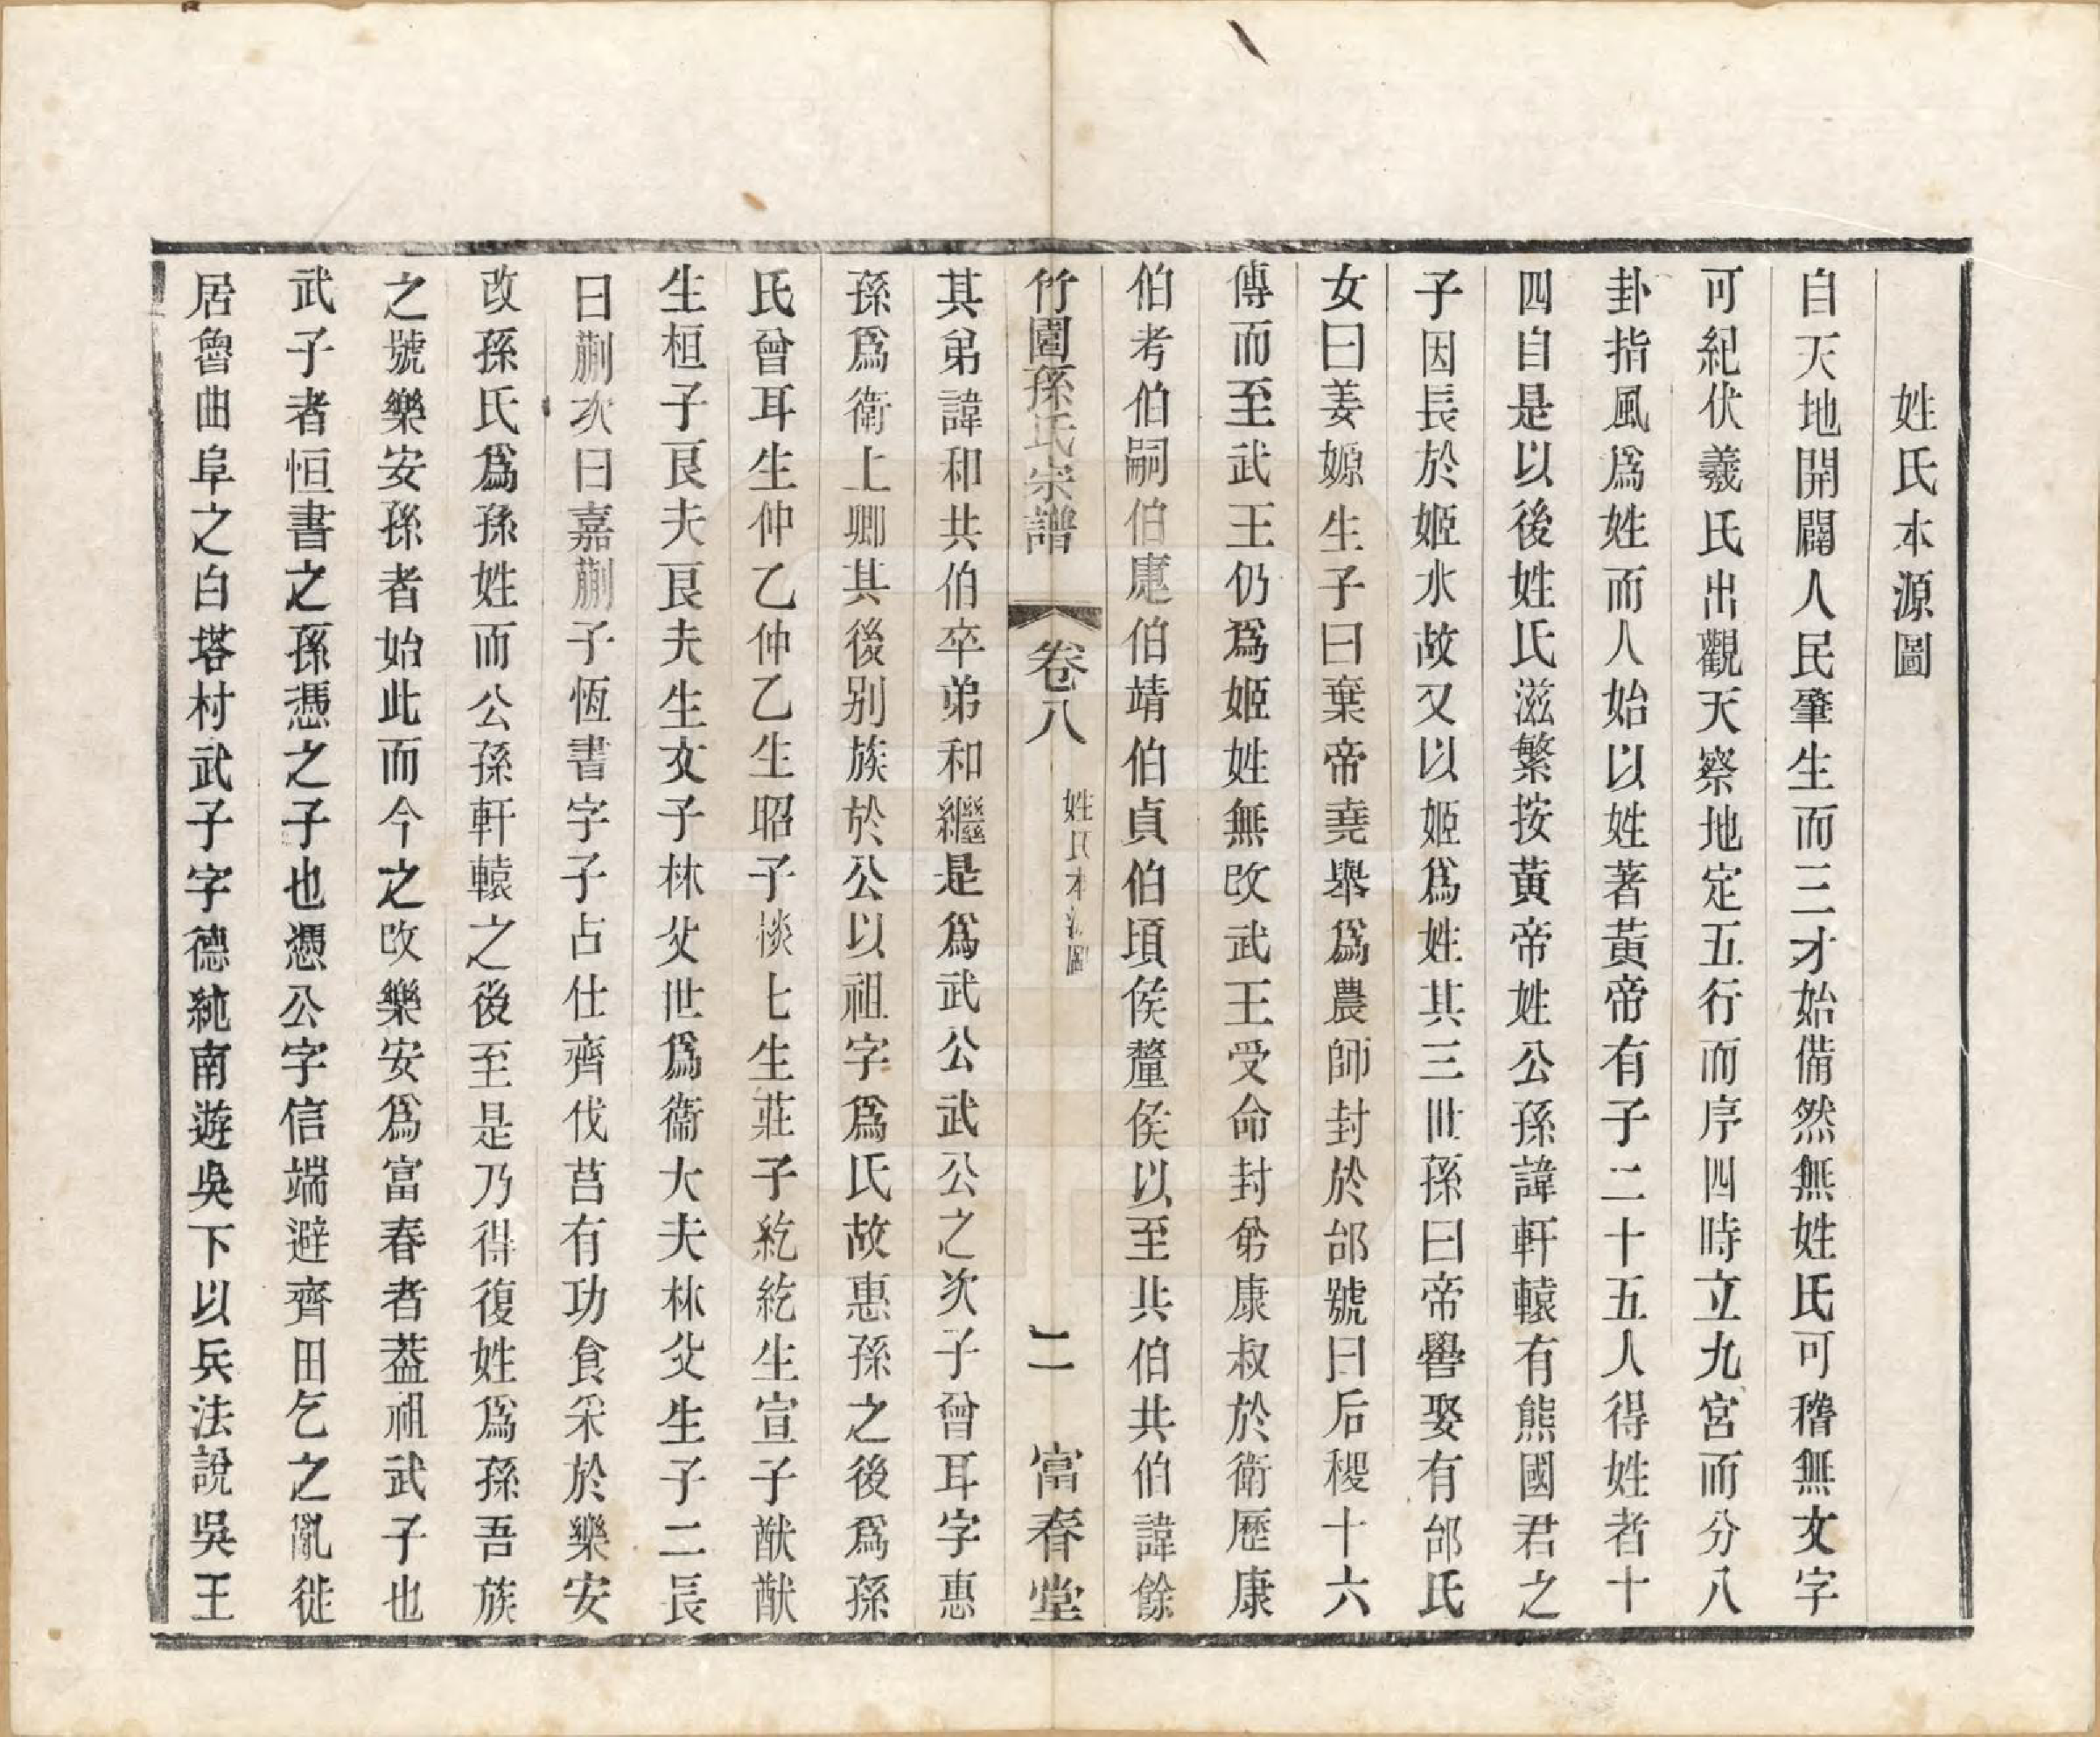 姓氏本源圖
自天地開闢人民肇生而三才始備然無姓氏可稽無文字
可紀伏羲氏出觀天察地定五行而序四時立九宮而分八
卦指風爲姓而人始以姓著黃帝有子二十五人得姓者十
四自是以後姓氏滋繁按黃帝姓公孫諱軒轅有熊國君之
子因長於姬水故又以姬爲姓其三世孫曰帝嚳娶有邰氏
女曰姜嫄生子曰棄帝堯舉爲農師封於邰號曰后稷十六
傳而至武王仍爲姬姓無改武王受命封弟康叔於衛歷康
伯考伯嗣伯庿伯靖伯貞伯頃侯釐侯以至共伯共伯諱餘
竹園孫氏宗譜 卷八 姓氏本源圖 二 富春堂
其弟諱和共伯卒弟和繼是爲武公武公之次子曾耳字惠
孫爲衛上卿其後別族於公以祖字爲氏故惠孫之後爲孫
氏曾耳生仲乙仲乙生昭子惔七生莊子紇紇生宣子猷猷
生桓子良夫良夫生文子林父世爲衞大夫林父生子二長
曰蒯次曰嘉蒯子恆書字子占仕齊伐莒有功食采於樂安
改孫氏爲孫姓而公孫軒轅之後至是乃得復姓爲孫吾族
之號樂安孫者始此而今之改樂安爲富春者葢祖武子也
武子者恒書之孫憑之子也憑公字信端避齊田乞之亂徙
居魯曲阜之白塔村武子字德純南遊吳下以兵法說吳王